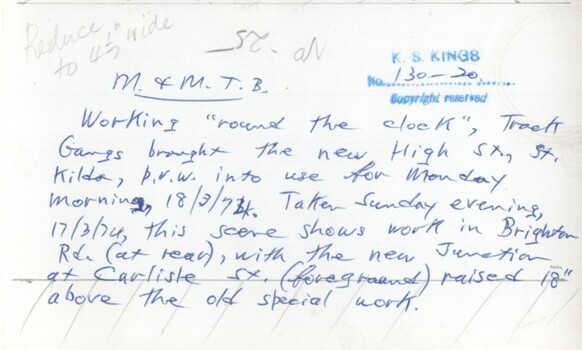 Reduce
to 4½" wide
No 25.
K. S. KINGS
No. 130-20.
Copyright reserved
M. & M. T. B.
Working "round the clock", Track
Gangs brought the new High St., St.
Kilda, p.v.w. into use for Monday
morning, 18/3/74. Taken Sunday evening,
17/3/74, this scene shows work in Brighton
Rd. (at rear), with the new Junction
at Carlisle St. (foreground) raised 18"
above the old special work.